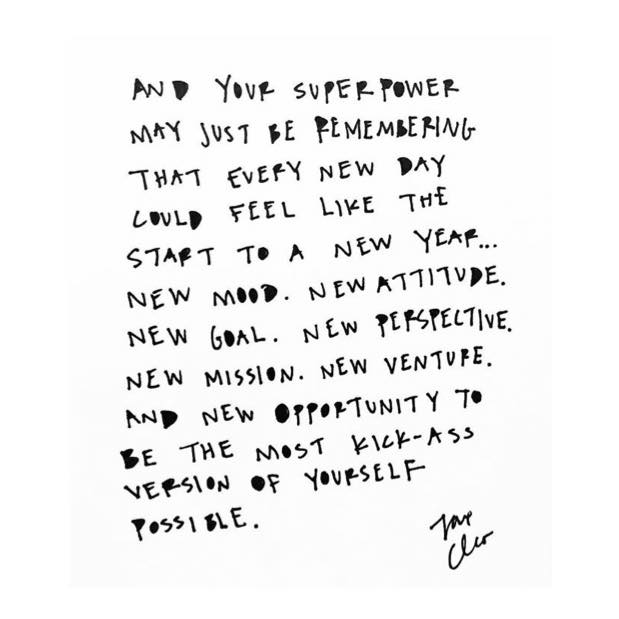 AND YOUR SUPERPOWER
MAY JUST BE REMEMBERING
THAT EVERY NEW DAY
COULD FEEL LIKE THE
START TO A NEW YEAR...
NEW MOOD. NEW ATTITUDE.
NEW GOAL. NEW PERSPECTIVE.
NEW MISSION. NEW VENTURE.
AND NEW OPPORTUNITY TO
BE THE MOST KICK-ASS
VERSION OF YOURSELF
POSSIBLE.
love
Cleo